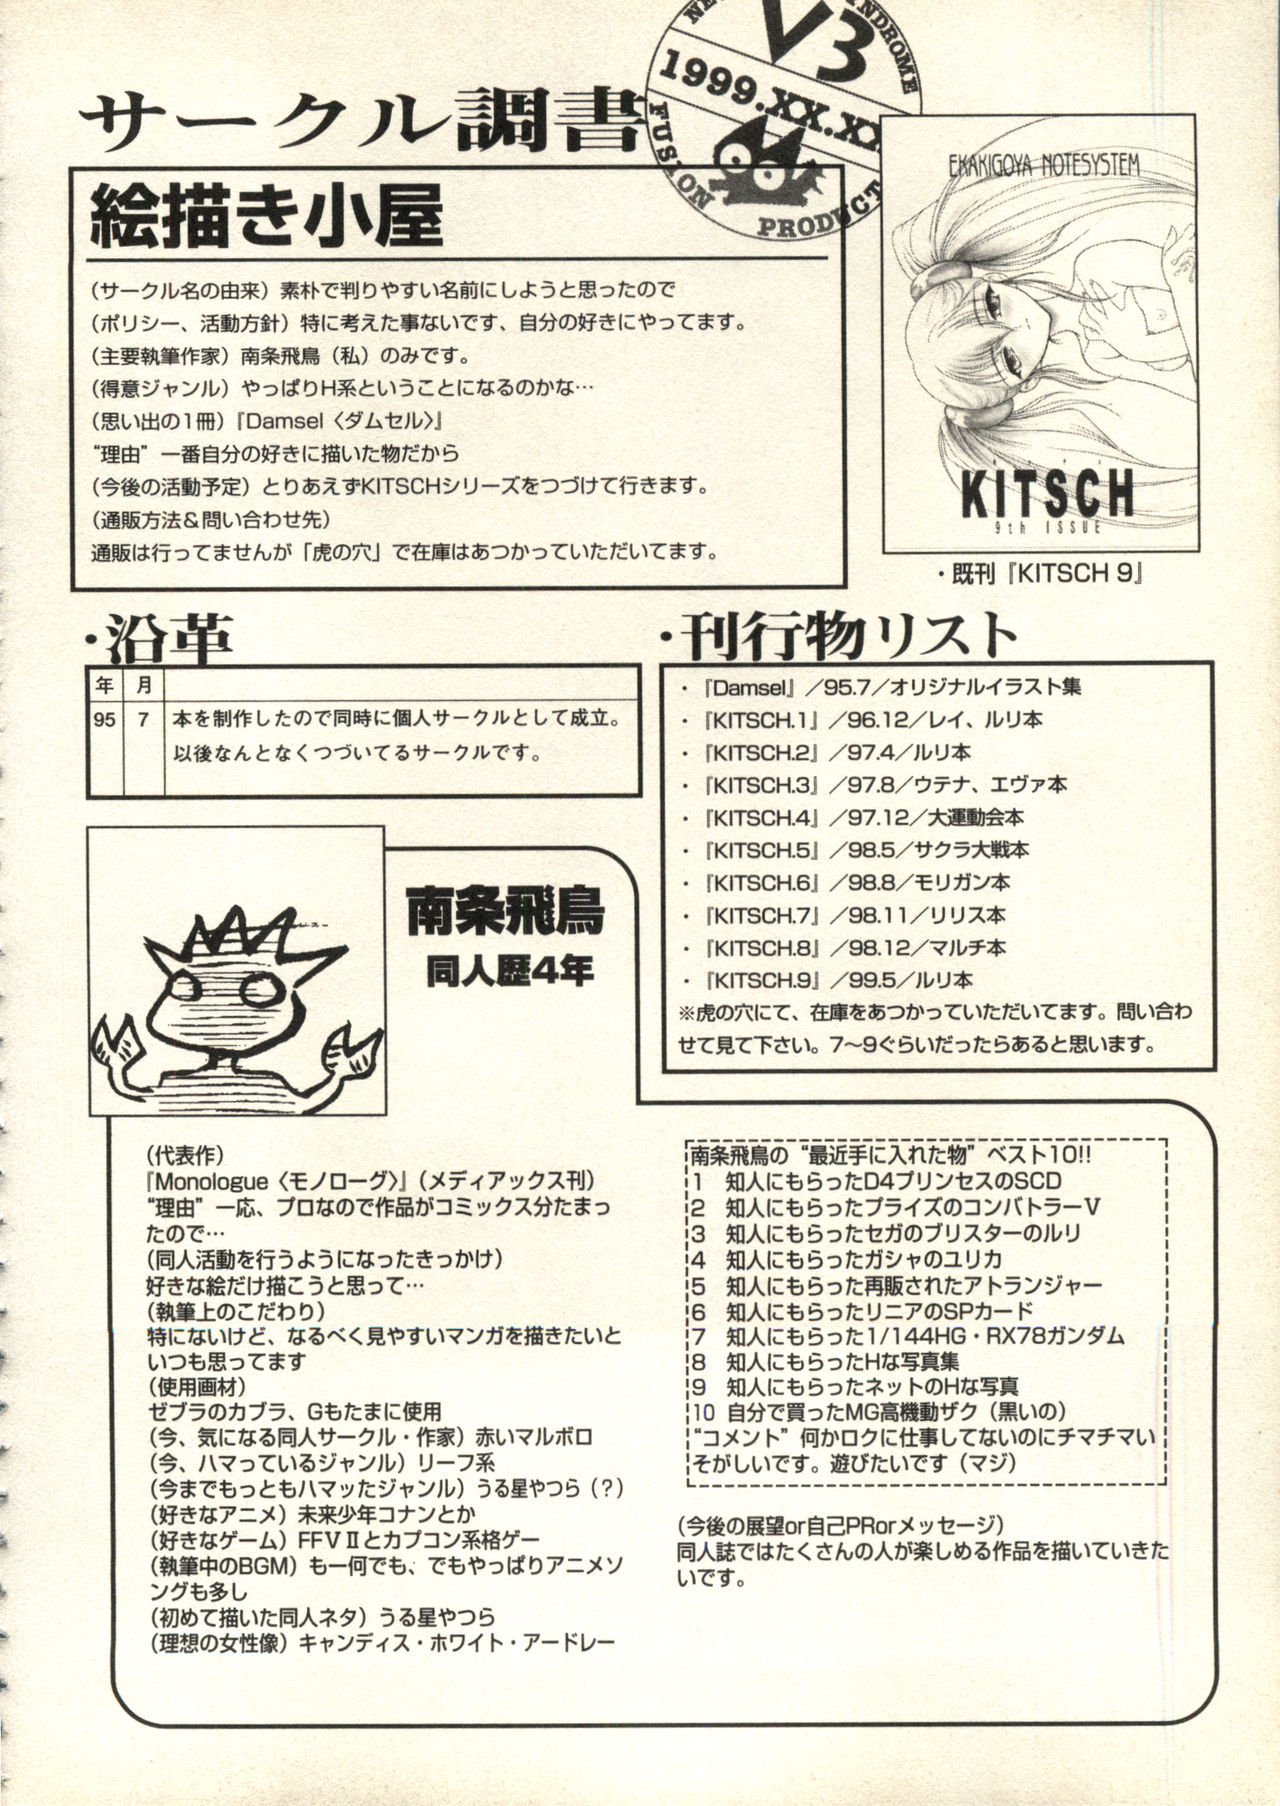 サークル調書
V3
1999.XX.XX
FUSION PRODUCT
絵描き小屋
(サークル名の由来) 素朴で判りやすい名前にしようと思ったので
(ポリシー、活動方針) 特に考えた事ないです、自分の好きにやってます。
(主要執筆作家) 南条飛鳥 (私) のみです。
(得意ジャンル) やっぱりH系ということになるのかな…
(思い出の1冊)『Damsel〈ダムセル〉』
“理由” 一番自分の好きに描いた物だから
(今後の活動予定) とりあえずKITSCHシリーズをつづけて行きます。
(通販方法&問い合わせ先)
通販は行ってませんが「虎の穴」で在庫はあつかっていただいてます。
EKAKIGOYA NOTESYSTEM
KITSCH
9th ISSUE
・既刊『KITSCH 9』
・沿革
年 月
95 7 本を制作したので同時に個人サークルとして成立。
以後なんとなくつづいてるサークルです。
・刊行物リスト
・『Damsel』/95.7/オリジナルイラスト集
・『KITSCH.1』/96.12/レイ、ルリ本
・『KITSCH.2』/97.4/ルリ本
・『KITSCH.3』/97.8/ウテナ、エヴァ本
・『KITSCH.4』/97.12/大運動会本
・『KITSCH.5』/98.5/サクラ大戦本
・『KITSCH.6』/98.8/モリガン本
・『KITSCH.7』/98.11/リリス本
・『KITSCH.8』/98.12/マルチ本
・『KITSCH.9』/99.5/ルリ本
※虎の穴にて、在庫をあつかっていただいてます。問い合わ
せて見て下さい。7〜9ぐらいだったらあると思います。
南条飛鳥
同人歴4年
(代表作)
『Monologue〈モノローグ〉』(メディアックス刊)
“理由” 一応、プロなので作品がコミックス分たまっ
たので…
(同人活動を行うようになったきっかけ)
好きな絵だけ描こうと思って…
(執筆上のこだわり)
特にないけど、なるべく見やすいマンガを描きたいと
いつも思ってます
(使用画材)
ゼブラのカブラ、Gもたまに使用
(今、気になる同人サークル・作家) 赤いマルボロ
(今、ハマっているジャンル) リーフ系
(今までもっともハマッたジャンル) うる星やつら (?)
(好きなアニメ) 未来少年コナンとか
(好きなゲーム) FFⅦとカプコン系格ゲー
(執筆中のBGM) も一何でも、でもやっぱりアニメソ
ングも多し
(初めて描いた同人ネタ) うる星やつら
(理想の女性像) キャンディス・ホワイト・アードレー
南条飛鳥の “最近手に入れた物” ベスト10!!
1 知人にもらったD4プリンセスのSCD
2 知人にもらったプライズのコンバトラーV
3 知人にもらったセガのブリスターのルリ
4 知人にもらったガシャのユリカ
5 知人にもらった再販されたアトランジャー
6 知人にもらったリニアのSPカード
7 知人にもらった1/144HG・RX78ガンダム
8 知人にもらったHな写真集
9 知人にもらったネットのHな写真
10 自分で買ったMG高機動ザク (黒いの)
“コメント” 何かロクに仕事してないのにチマチマい
そがしいです。遊びたいです (マジ)
(今後の展望or自己PRorメッセージ)
同人誌ではたくさんの人が楽しめる作品を描いていきた
いです。